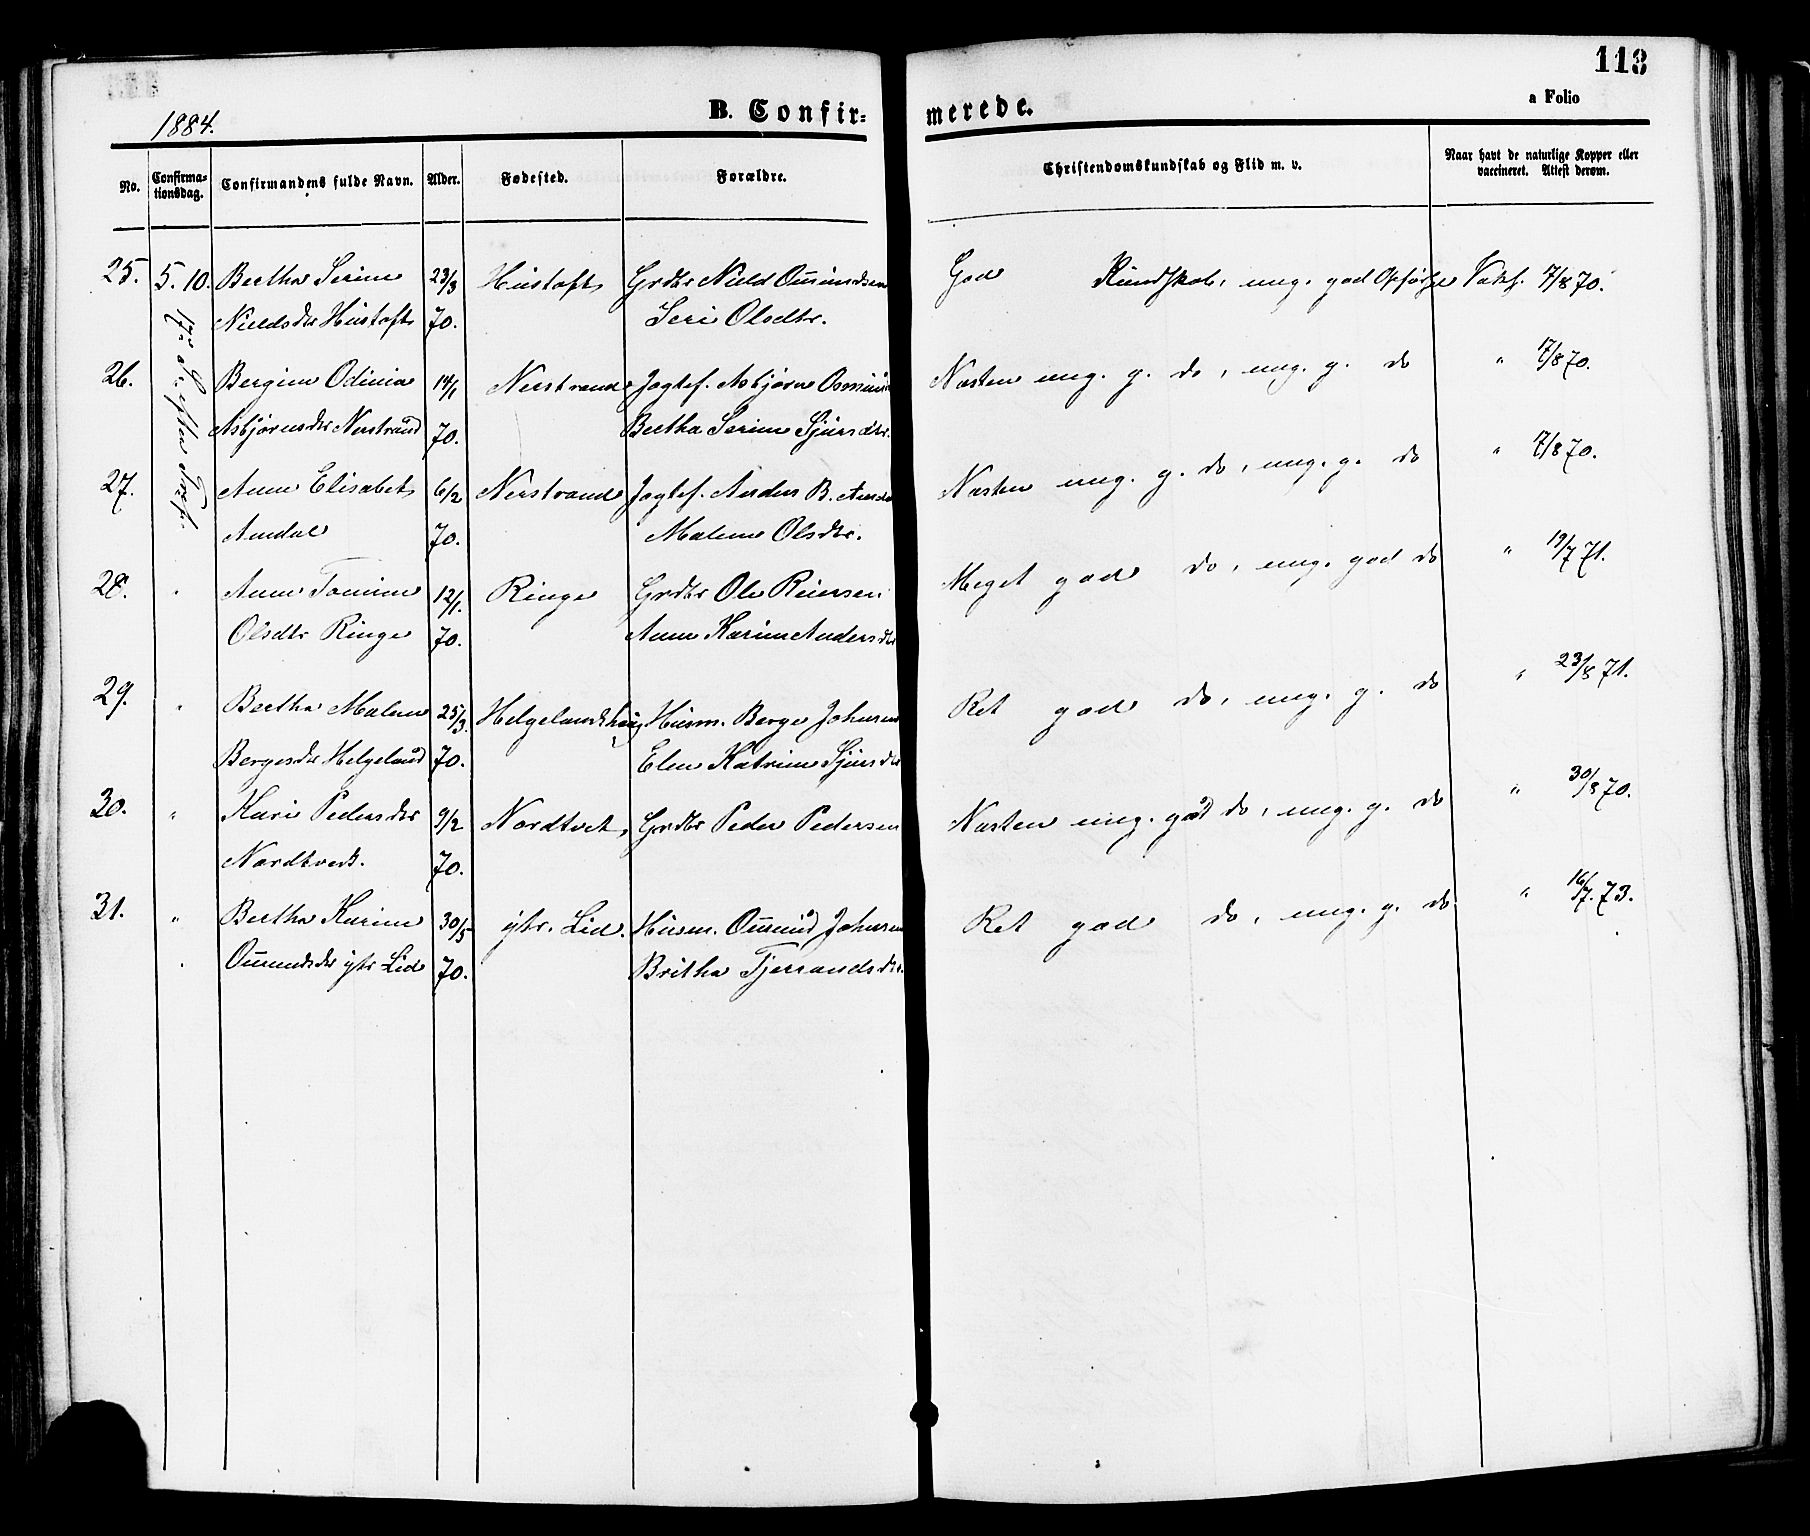 113
a Folio
1884.
B. Confirmerede.
No. Confirmationsdag. Confirmandens fulde Navn. Alder. Fødested. Forældre. Christendomskundskab og Flid m. v. Naar havt de naturlige Kopper eller vaccineret. Attest derom.
25. 5. 10. Bertha Serine 23/3 Hustoft Grdbr Nield Ommundsen God Kundskab, meg. god Opførs Vakc. 7/8 70.
Nieldsdtr Hustoft 70. Seri Olsdtr.
17de S. efter Tref.
26. Bergine Odinia 14/1 Nerstrand Jagtef. Asbjørn Osmund Næsten meg. g. do, meg. g. do " 17/8 70.
Asbjørnsdtr Nerstrand 70. Bertha Serine Sjursdtr.
27. Anne Elisabet 6/2 Nerstrand Jagtef. Anders B. Næsten meg. g. do, meg. g. do " 7/8 70.
Amdal 70. Malene Olsdtr.
28. " Anne Tomine 12/1. Ringe Grdbr Ole Reiersen Meget god do, meg. god do " 19/7 71.
Olsdtr Ringe 70. Anne Karine Andersdtr
29. " Bertha Malene 25/3. Helgelandshaug Husm. Berge Johnsen Ret god do, meg. g. do " 23/8 71.
Bergesdtr Helgeland 70. Elen Katrine Sjursdtr
30. " Kari Pedersdtr 9/2 Nordtvet Grdbr Peder Pedersen Næsten meg. god do, meg. g. do " 30/8 70.
Nordtvedt. 70.
31. " Bertha Karine 30/5 ytr. Lid. Husm. Omund Johnsen Ret god do, meg. g. do " 16/7. 73.
Omundsdtr ytr Lid 70. Britha Tjerrandsdtr.